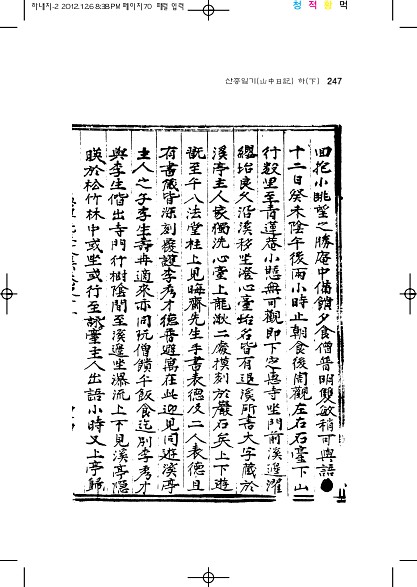 하내지-2 2012.12.6 8:38 PM 페이지70 패럴 입력
청 적 황 먹
산중일기(山中日記) 하(下) 247
回抱小眺望之勝庵中備饋夕食僧普明雙敏稍可與語●
十二日癸未陰午後雨小時止朝食後周觀左右石臺下山
行數里至青蓮庵小憩無可觀即下定惠寺坐門前溪邊濯
纓坮良久沿溪移坐登心臺坮名皆有退溪所書大字藏於
溪亭主人家獨洗心臺上龍湫二處模刻於巖石矣上下遊
翫至午入法堂柱上見晦齋先生手書表德及二人表德且
有書藏皆深刻覆護李秀才德普避寓在此迎見同遊溪亭
主人之子李生壽冉適來亦同阮僧饋午飯食訖別李秀才
與李生偕出寺門行樹陰間至溪邊坐瀑流上不見溪亭隱
暎於松竹林中或坐或行至詠臺主人出語小時又上亭歸